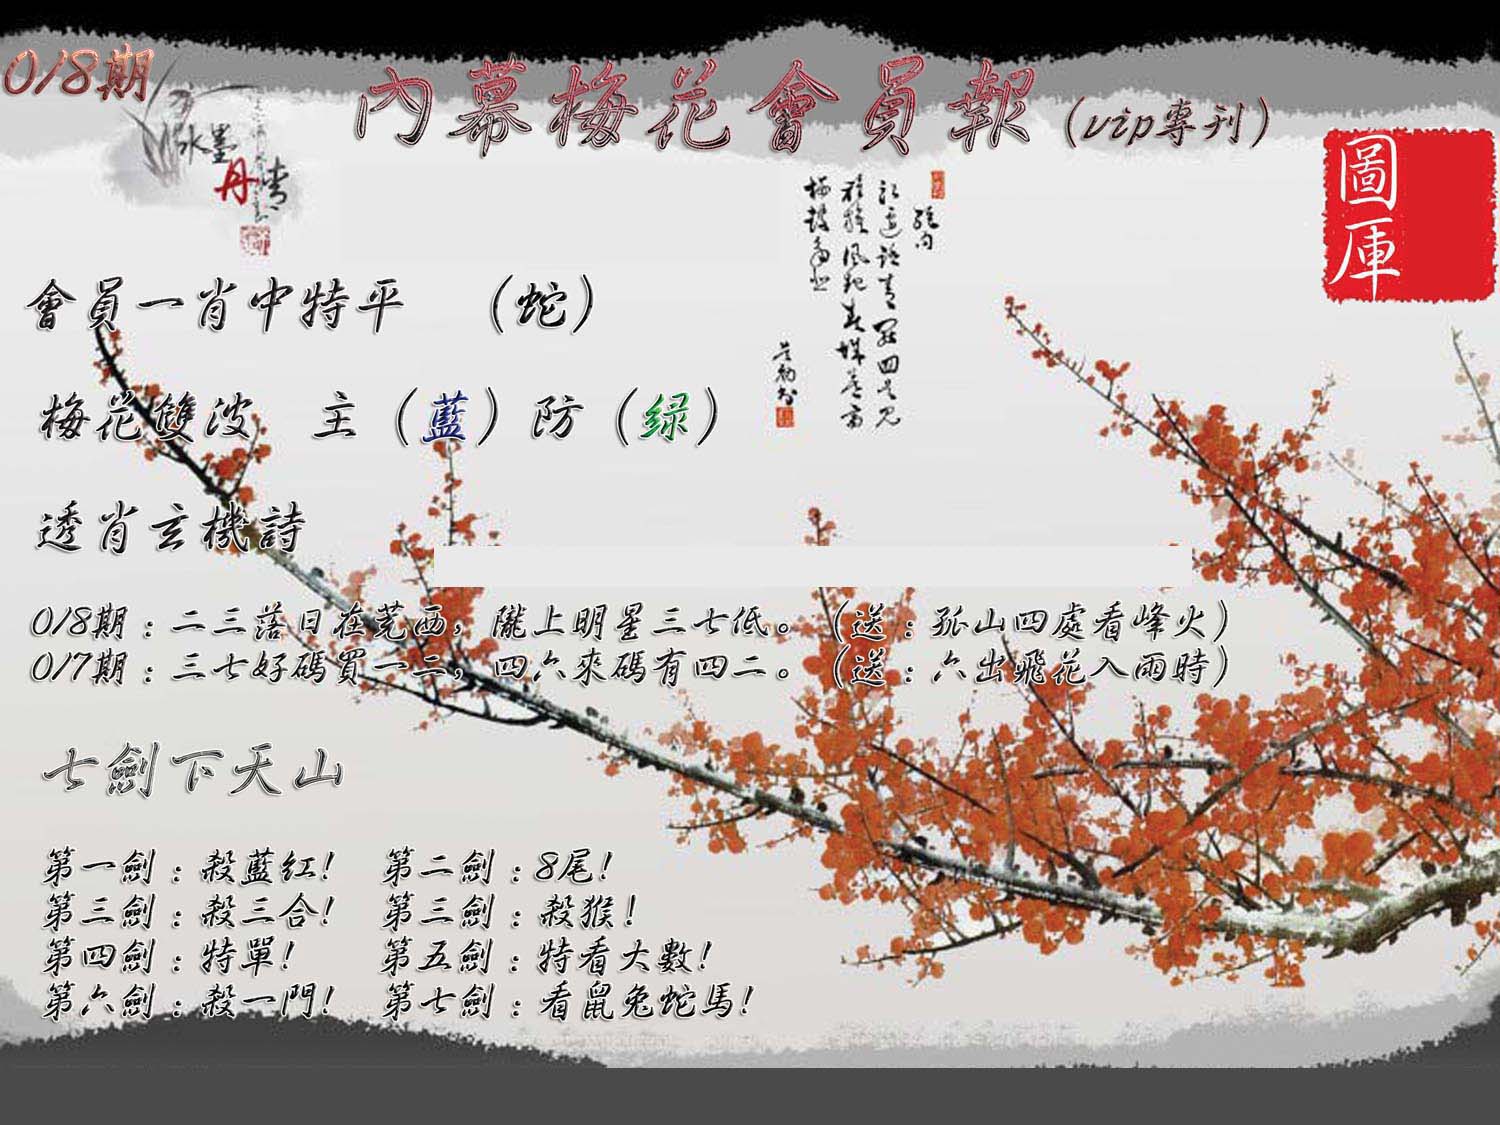 018期
內幕梅花會員報（vip專刊）
水墨
丹青
圖庫
會員一肖中特平 （蛇）
梅花雙波 主（藍）防（绿）
透肖玄機詩
018期：二三落日在荒西，隴上明星三七低。（送：孤山四處看峰火）
017期：三七好碼買一二，四六來碼有四二。（送：六出飛花入雨時）
七劍下天山
第一劍：殺藍紅！ 第二劍：8尾！
第三劍：殺三合！ 第三劍：殺猴！
第四劍：特單！ 第五劍：特看大數！
第六劍：殺一門！ 第七劍：看鼠兔蛇馬！